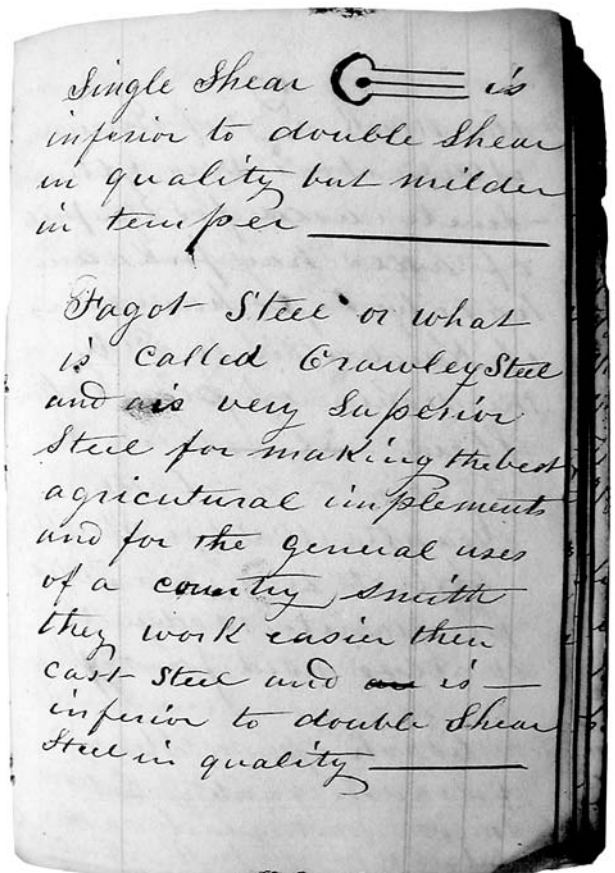 Single Shear is
inferior to double Shear
in quality but milder
in temper
Fagot Steel or what
is called Crawley Steel
and is very Superior
Steel for making the best
agricutural implements
and for the general uses
of a country smith
they work easier then
cast Steel and is
inferior to double Shear
Steel in quality